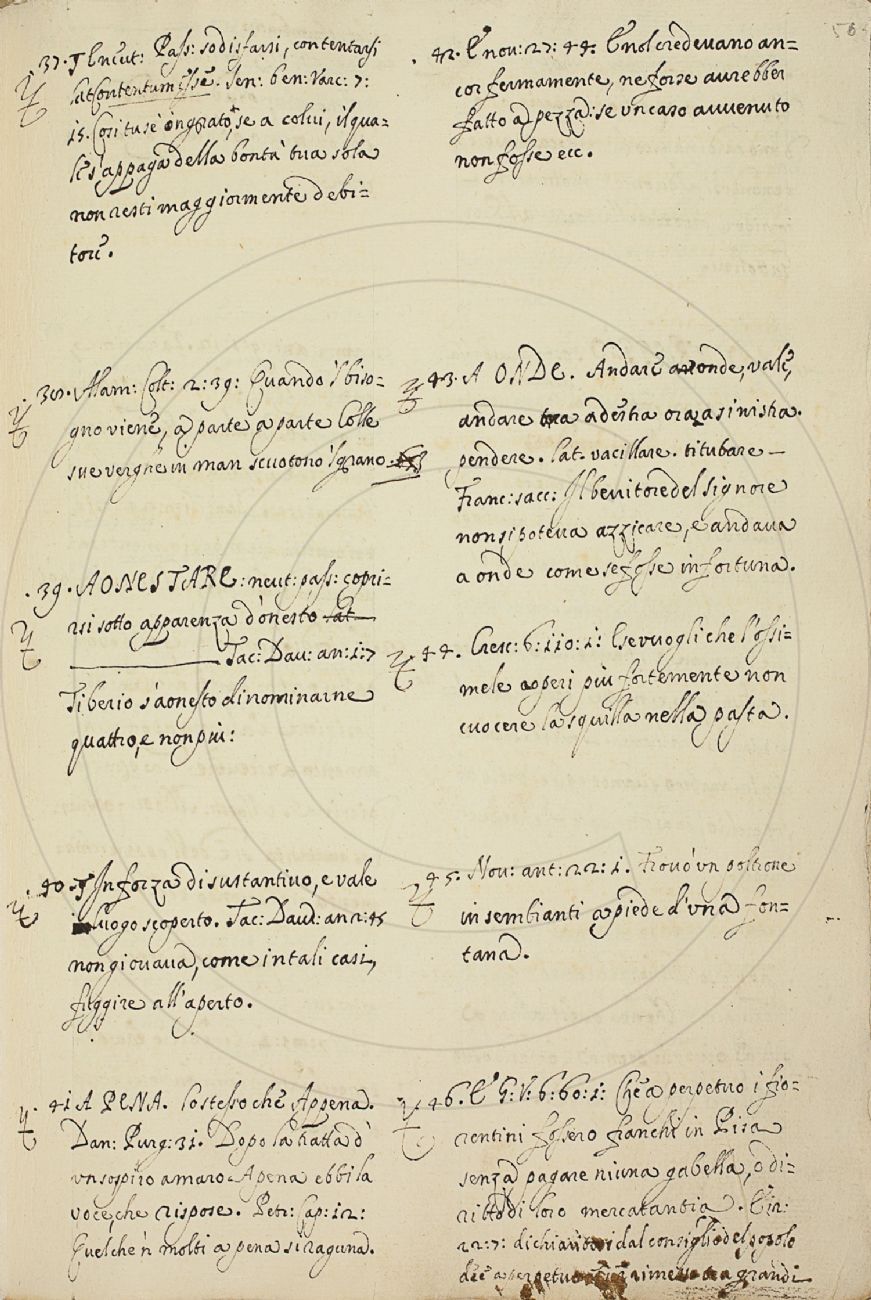 37. ¶ E neut: Pass: sodisfarsi, contentarsi
lat. Contentum esse. Sen: ben: Varc: 7:
15. Così tu se' ongrato, se a colui, il qua=
le s'appaga della bontà tua sola
non resti maggiormente debi=
tore.
38. Alam: Colt: 2: 39: Quando 'l biso=
gno viene, a parte a parte Colle
sue verghe in man scuotono 'l grano
39. AONESTARE: neut: pass: copri=
rsi sotto apparenza d'onesto lat
Tac: Dav: an: 1: 7
Tiberio s'aonestò di nominarne
quattro, e non più:
40. ¶ In forza di sustantivo, e vale
luogo scoperto. Tac: Davd: an 2: 45
non giovava, come in tali casi,
fuggire all'aperto.
41 A PENA. Lo stesso che Appena.
Dan: Purg: 31. Dopo la tratta d'
un sospiro amaro A pena ebbi la
voce, che rispose. Petr: Cap: 12:
Quel che 'n molti a pena si raguna.
42. E nov: 27: 44: E nol credevano an=
cor fermamente, ne forse avrebber
fatto a pezza: se un caso avvenuto
non fosse ecc.
43. A ONDE. Andare a onde, vale,
andare ora a destra ora a sinistra.
pendere. lat. vacillare. titubare —
Franc: sacc: Il bevitore del signore
non si poteva azzicare, e andava
a onde come se fosse in fortuna.
44. Cresc: 6: 110: 1: E se vuogli che l'ossi=
mele aoperi più fortemente non
cuocere la squilla nella pasta.
45. Nov: ant: 22: 1. Trovò un poltrone
in sembianti a piede d'una fon=
tana.
46. E G: V: 6: 60: 1: Che a perpetuo i fio=
rentini fossero franchi in Pisa
senza pagare niuna gabella, o di=
ritto di loro mercatantia. E in:
22: 7: dal consiglio del popolo
che a perpetuo grandi